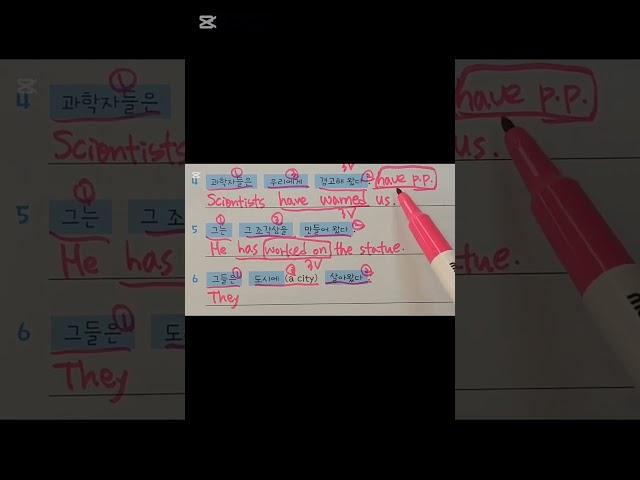 4 과학자들은 우리에게 경고해 왔다. have p.p.
Scientists have warned us.
5 그는 그 조각상을 만들어 왔다.
He has worked on the statue.
6 그들은 도시에 (a city) 살아왔다.
They